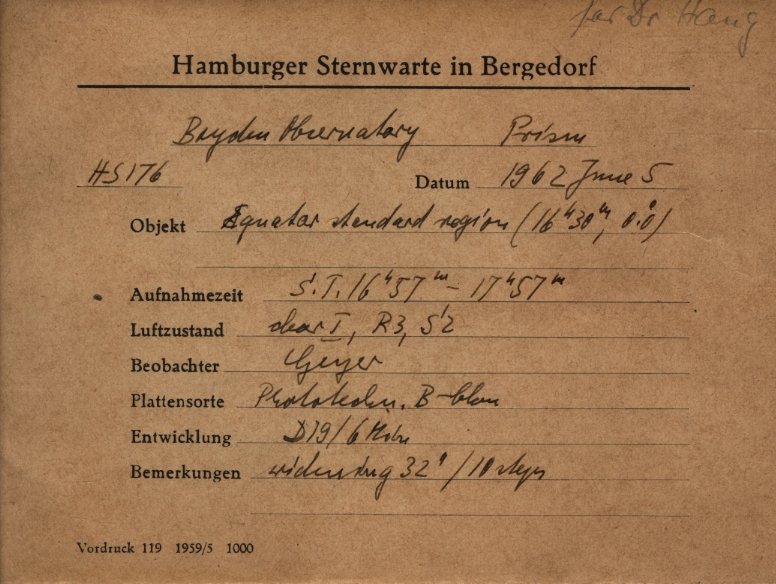 for Dr Haug
Hamburger Sternwarte in Bergedorf
Boyden Observatory Prism
HS176 Datum 1962 June 5
Objekt Equator standard region (16ʰ30ᵐ, 0.°0)
Aufnahmezeit S.T. 16ʰ57ᵐ – 17ʰ57ᵐ
Luftzustand clear I, R3, S2
Beobachter Geyer
Plattensorte Phototechn. B-blau
Entwicklung D19/6 Min
Bemerkungen widening 32" / 10 steps
Vordruck 119 1959/5 1000